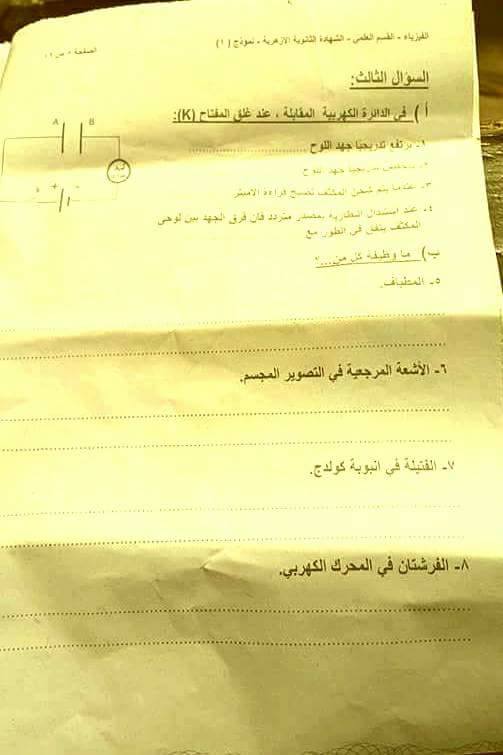 الفيزياء - القسم العلمى - الشهادة الثانوية الأزهرية - نموذج ( ١ )
الصفحة
السؤال الثالث:
أ ) فى الدائرة الكهربية المقابلة ، عند غلق المفتاح (K):
A B
١- يرتفع تدريجيا جهد اللوح ...............
٢- جهد اللوح
٣- عندما يتم شحن المكثف تصبح قراءة الأميتر
٤- عند استبدال البطارية بمصدر متردد فإن فرق الجهد بين لوحى
المكثف يتفق فى الطور مع
ب ) ما وظيفة كل من...؟
٥- المطياف.
٦- الأشعة المرجعية في التصوير المجسم.
٧- الفتيلة في انبوبة كولدج.
٨- الفرشتان في المحرك الكهربي.